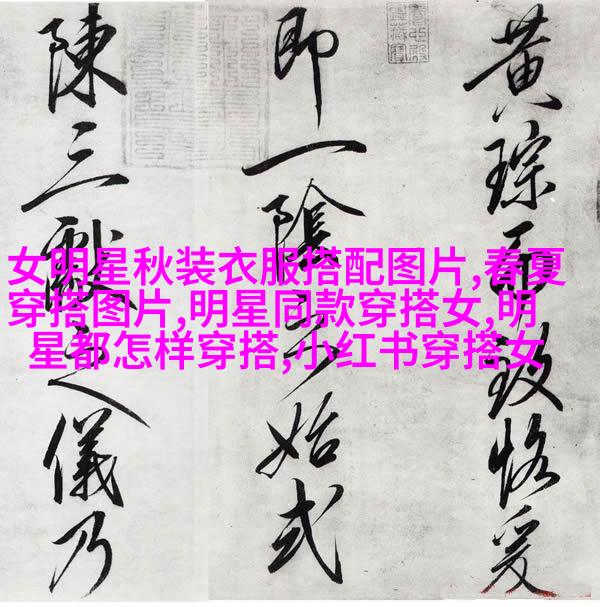 黄琮而致恪爰
即一陰始式
陳三獻之儀乃
女明星秋装衣服搭配图片,春夏
穿搭图片,明星同款穿搭女,明
星都怎样穿搭,小红书穿搭女